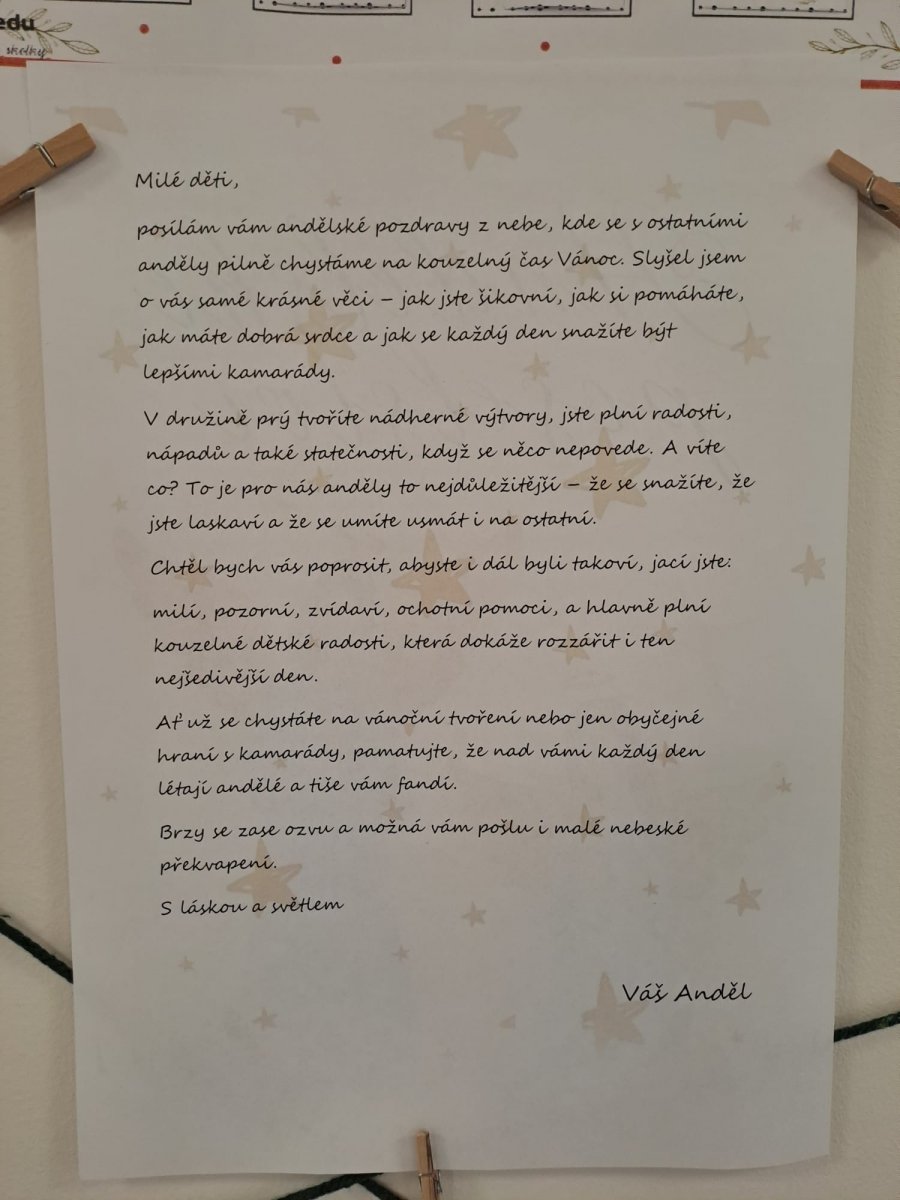 edu
skolky
Milé děti,
posílám vám andělské pozdravy z nebe, kde se s ostatními
anděly pilně chystáme na kouzelný čas Vánoc. Slyšel jsem
o vás samé krásné věci – jak jste šikovní, jak si pomáháte,
jak máte dobrá srdce a jak se každý den snažíte být
lepšími kamarády.
V družině prý tvoříte nádherné výtvory, jste plní radosti,
nápadů a také statečnosti, když se něco nepovede. A víte
co? To je pro nás anděly to nejdůležitější – že se snažíte, že
jste laskaví a že se umíte usmát i na ostatní.
Chtěl bych vás poprosit, abyste i dál byli takoví, jací jste:
milí, pozorní, zvídaví, ochotní pomoci, a hlavně plní
kouzelné dětské radosti, která dokáže rozzářit i ten
nejšedivější den.
Ať už se chystáte na vánoční tvoření nebo jen obyčejné
hraní s kamarády, pamatujte, že nad vámi každý den
létají andělé a tiše vám fandí.
Brzy se zase ozvu a možná vám pošlu i malé nebeské
překvapení.
S láskou a světlem
Váš Anděl